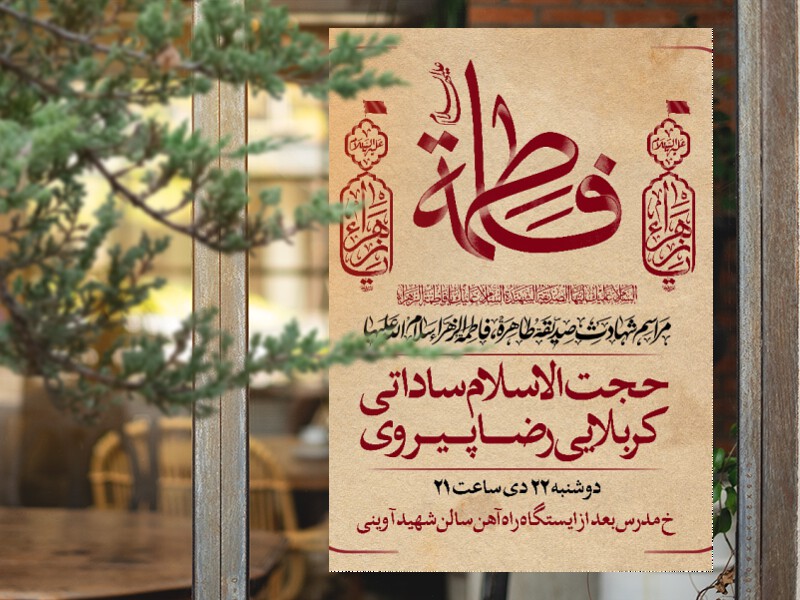 فاطمة
علیها سلام
علیه السلام
یا زهراء
علیه السلام
یا زهراء
السلام علیک ایتها الصدیقة الشهیدة السلام علیک یا فاطمة الزهراء
مراسم شهادت صدیقه طاهره، فاطمة الزهرا سلام الله علیها
حجت الاسلام ساداتی
کربلایی رضا پیروی
دوشنبه ۲۲ دی ساعت ۲۱
خ مدرس بعد از ایستگاه راه آهن سالن شهید آوینی